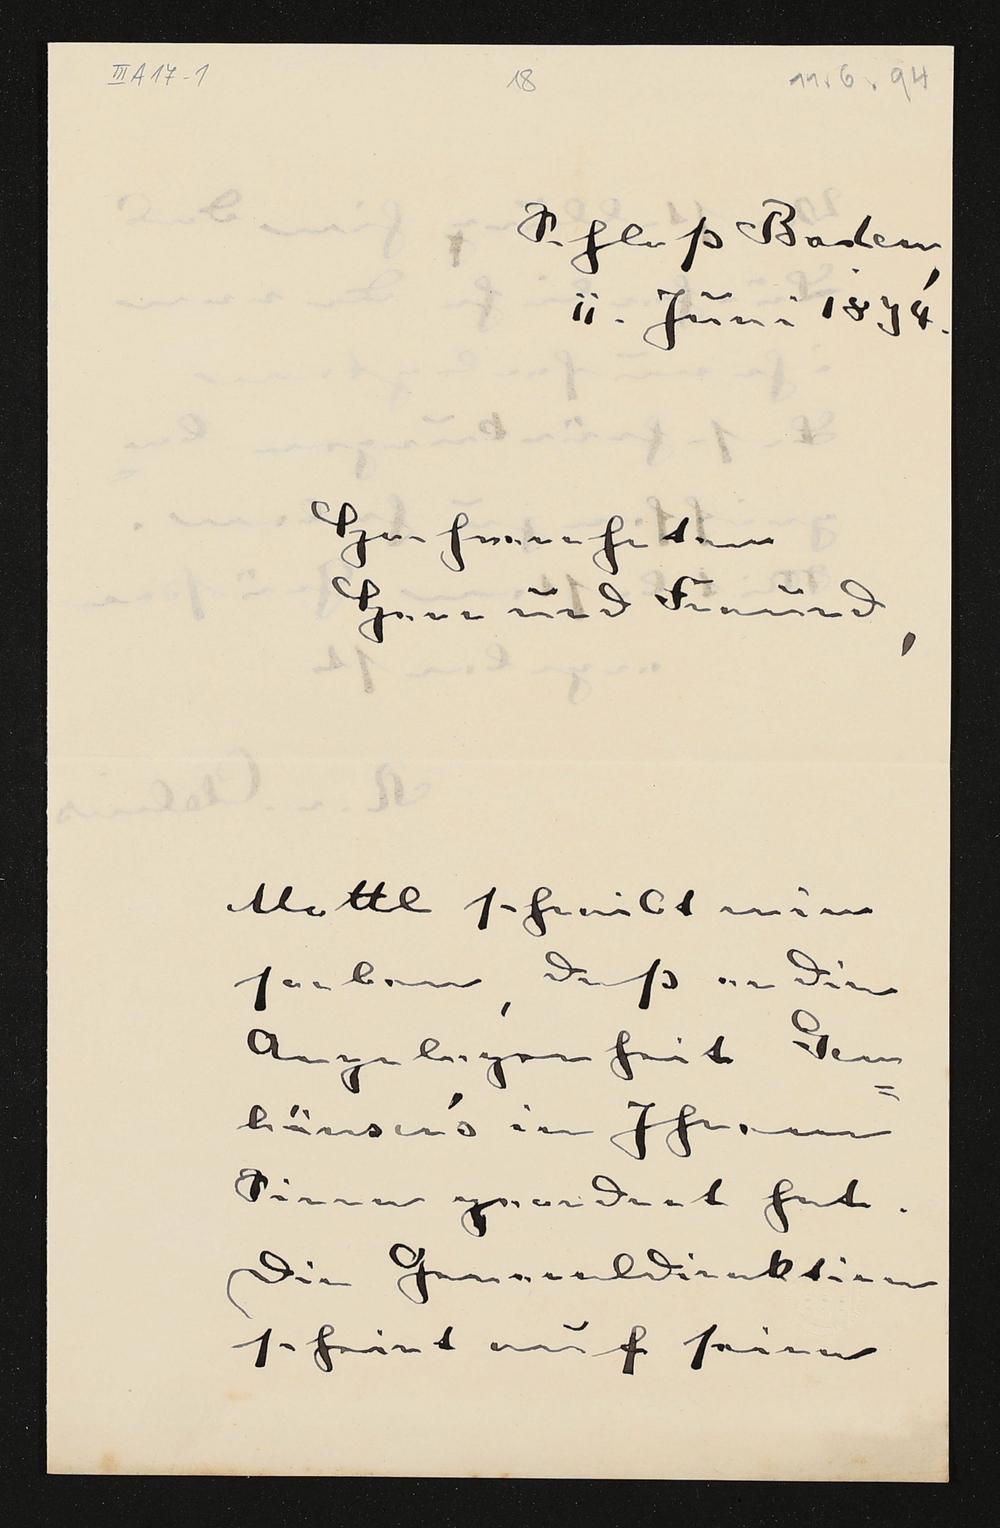 III A 17-1
18
11.6.94
Schloß Baden,
11. Juni 1894.
Hochverehrter
Herr und Freund,
Mottl schreibt mir
soeben, daß er die
Angelegenheit Ger=
häuser's in Ihrem
Sinne geordnet hat.
Die Generaldirektion
scheint auf seine